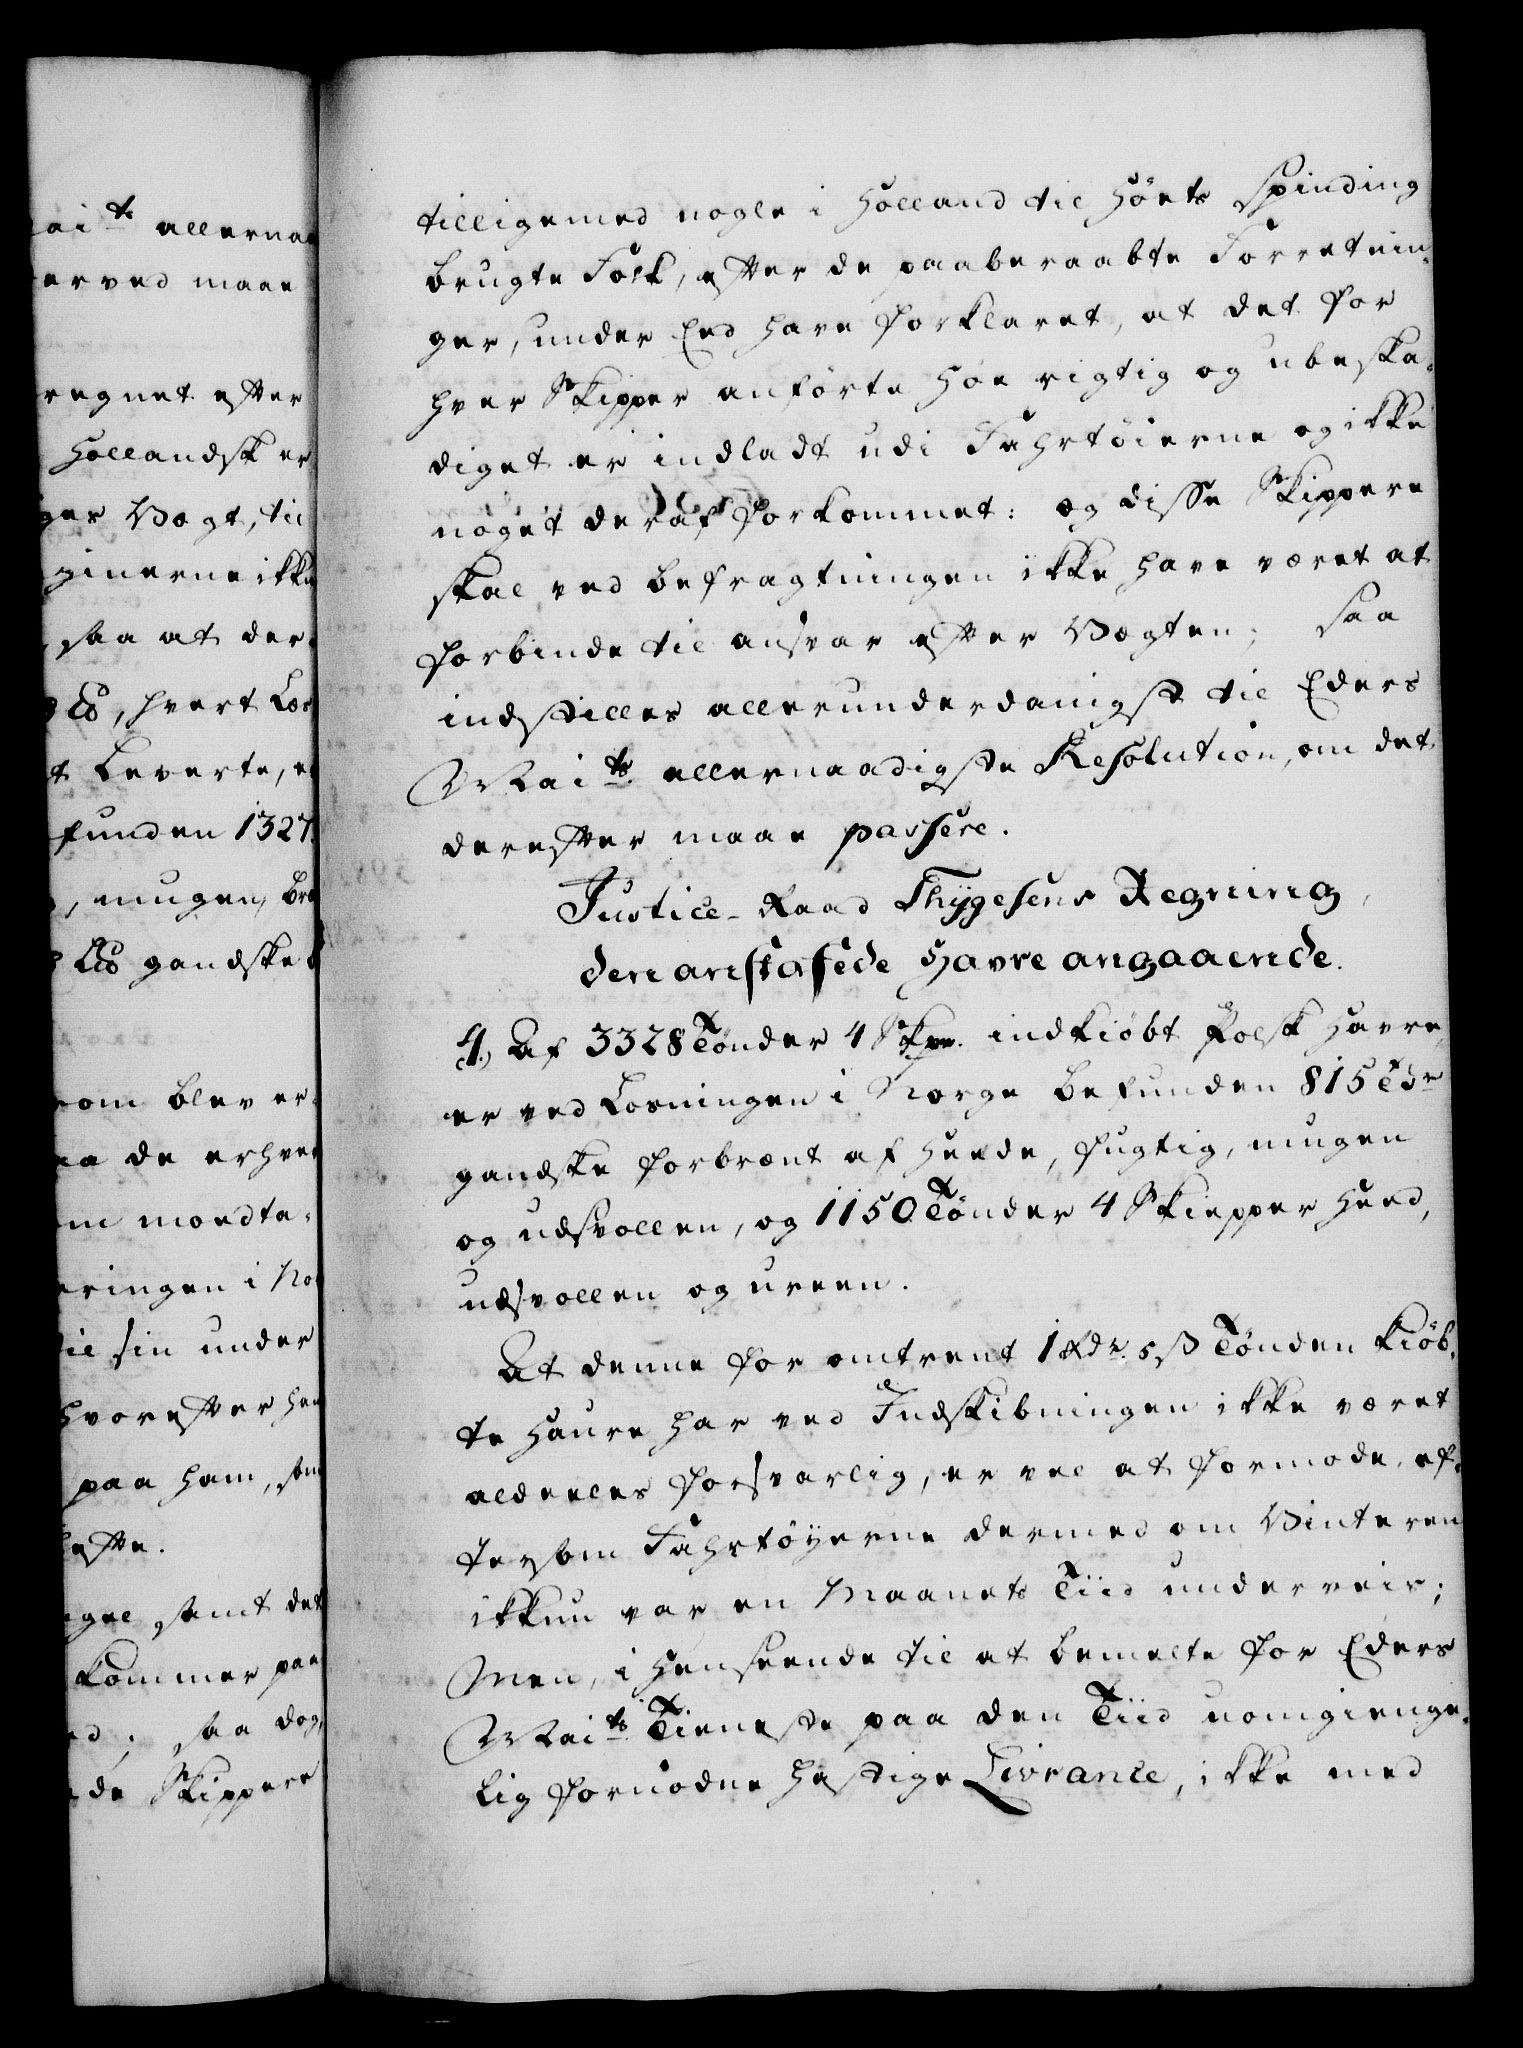 ai ts allernaa
erved maae
regnet efter
Hollandsk er
ges Vægt, til
ginerne ikke
saa at der-
hvert Læs
t Leverte, e
funden 1327
, mugen, bræ
gandske
som blev er-
aa de erhver
em modta-
eringen i No
til sin under
hvorefter han
paa ham, som
efte.
egne samt det
kommer paa
ed; saa dog,
de Skippere
tilligemed nogle i Holland til Höets Spinding
brugte Folk, efter de paaberaabte Forretnin-
ger, under Eed have forklaret, at det for
hver Skipper anförte Höe rigtig og ubeska-
diget er indladt udi Fahrtöierne og ikke
noget deraf forkommet: og disse Skippere
skal ved befragtningen ikke have været at
forbinde til ansvar efter Vægten; saa
indstilles allerunderdanigst til Eders
Mai ts. allernaadigste Resolution, om det
derefter maae passere.
Justice-Raad Thÿgesens Regning,
den anskaffede Havre angaaende.
4.) Af 3328 Tönder 4 Skpr. indkiöbt Polsk Havre,
er ved Losningen i Norge befunden 815 Tdr
gandske forbrænt af Heede, fugtig, mugen
og udsvollen, og 1150 Tönder 4 Skiepper heed,
udsvollen og ureen.
At denne for omtrent 1 Rdr. 5 ß Tönden kiöb-
te Haure har ved Indskibningen ikke været
aldeeles forsvarlig, er vel at formode, ef-
tersom Fahrtöyerne dermed om Vinteren
ikkun var en Maanets Tiid underveis;
Men, i Henseende til at bemelte for Eders
Mai ts. Tieneste paa den Tiid uomgienge-
lig fornödne hastige Livrance, ikke med